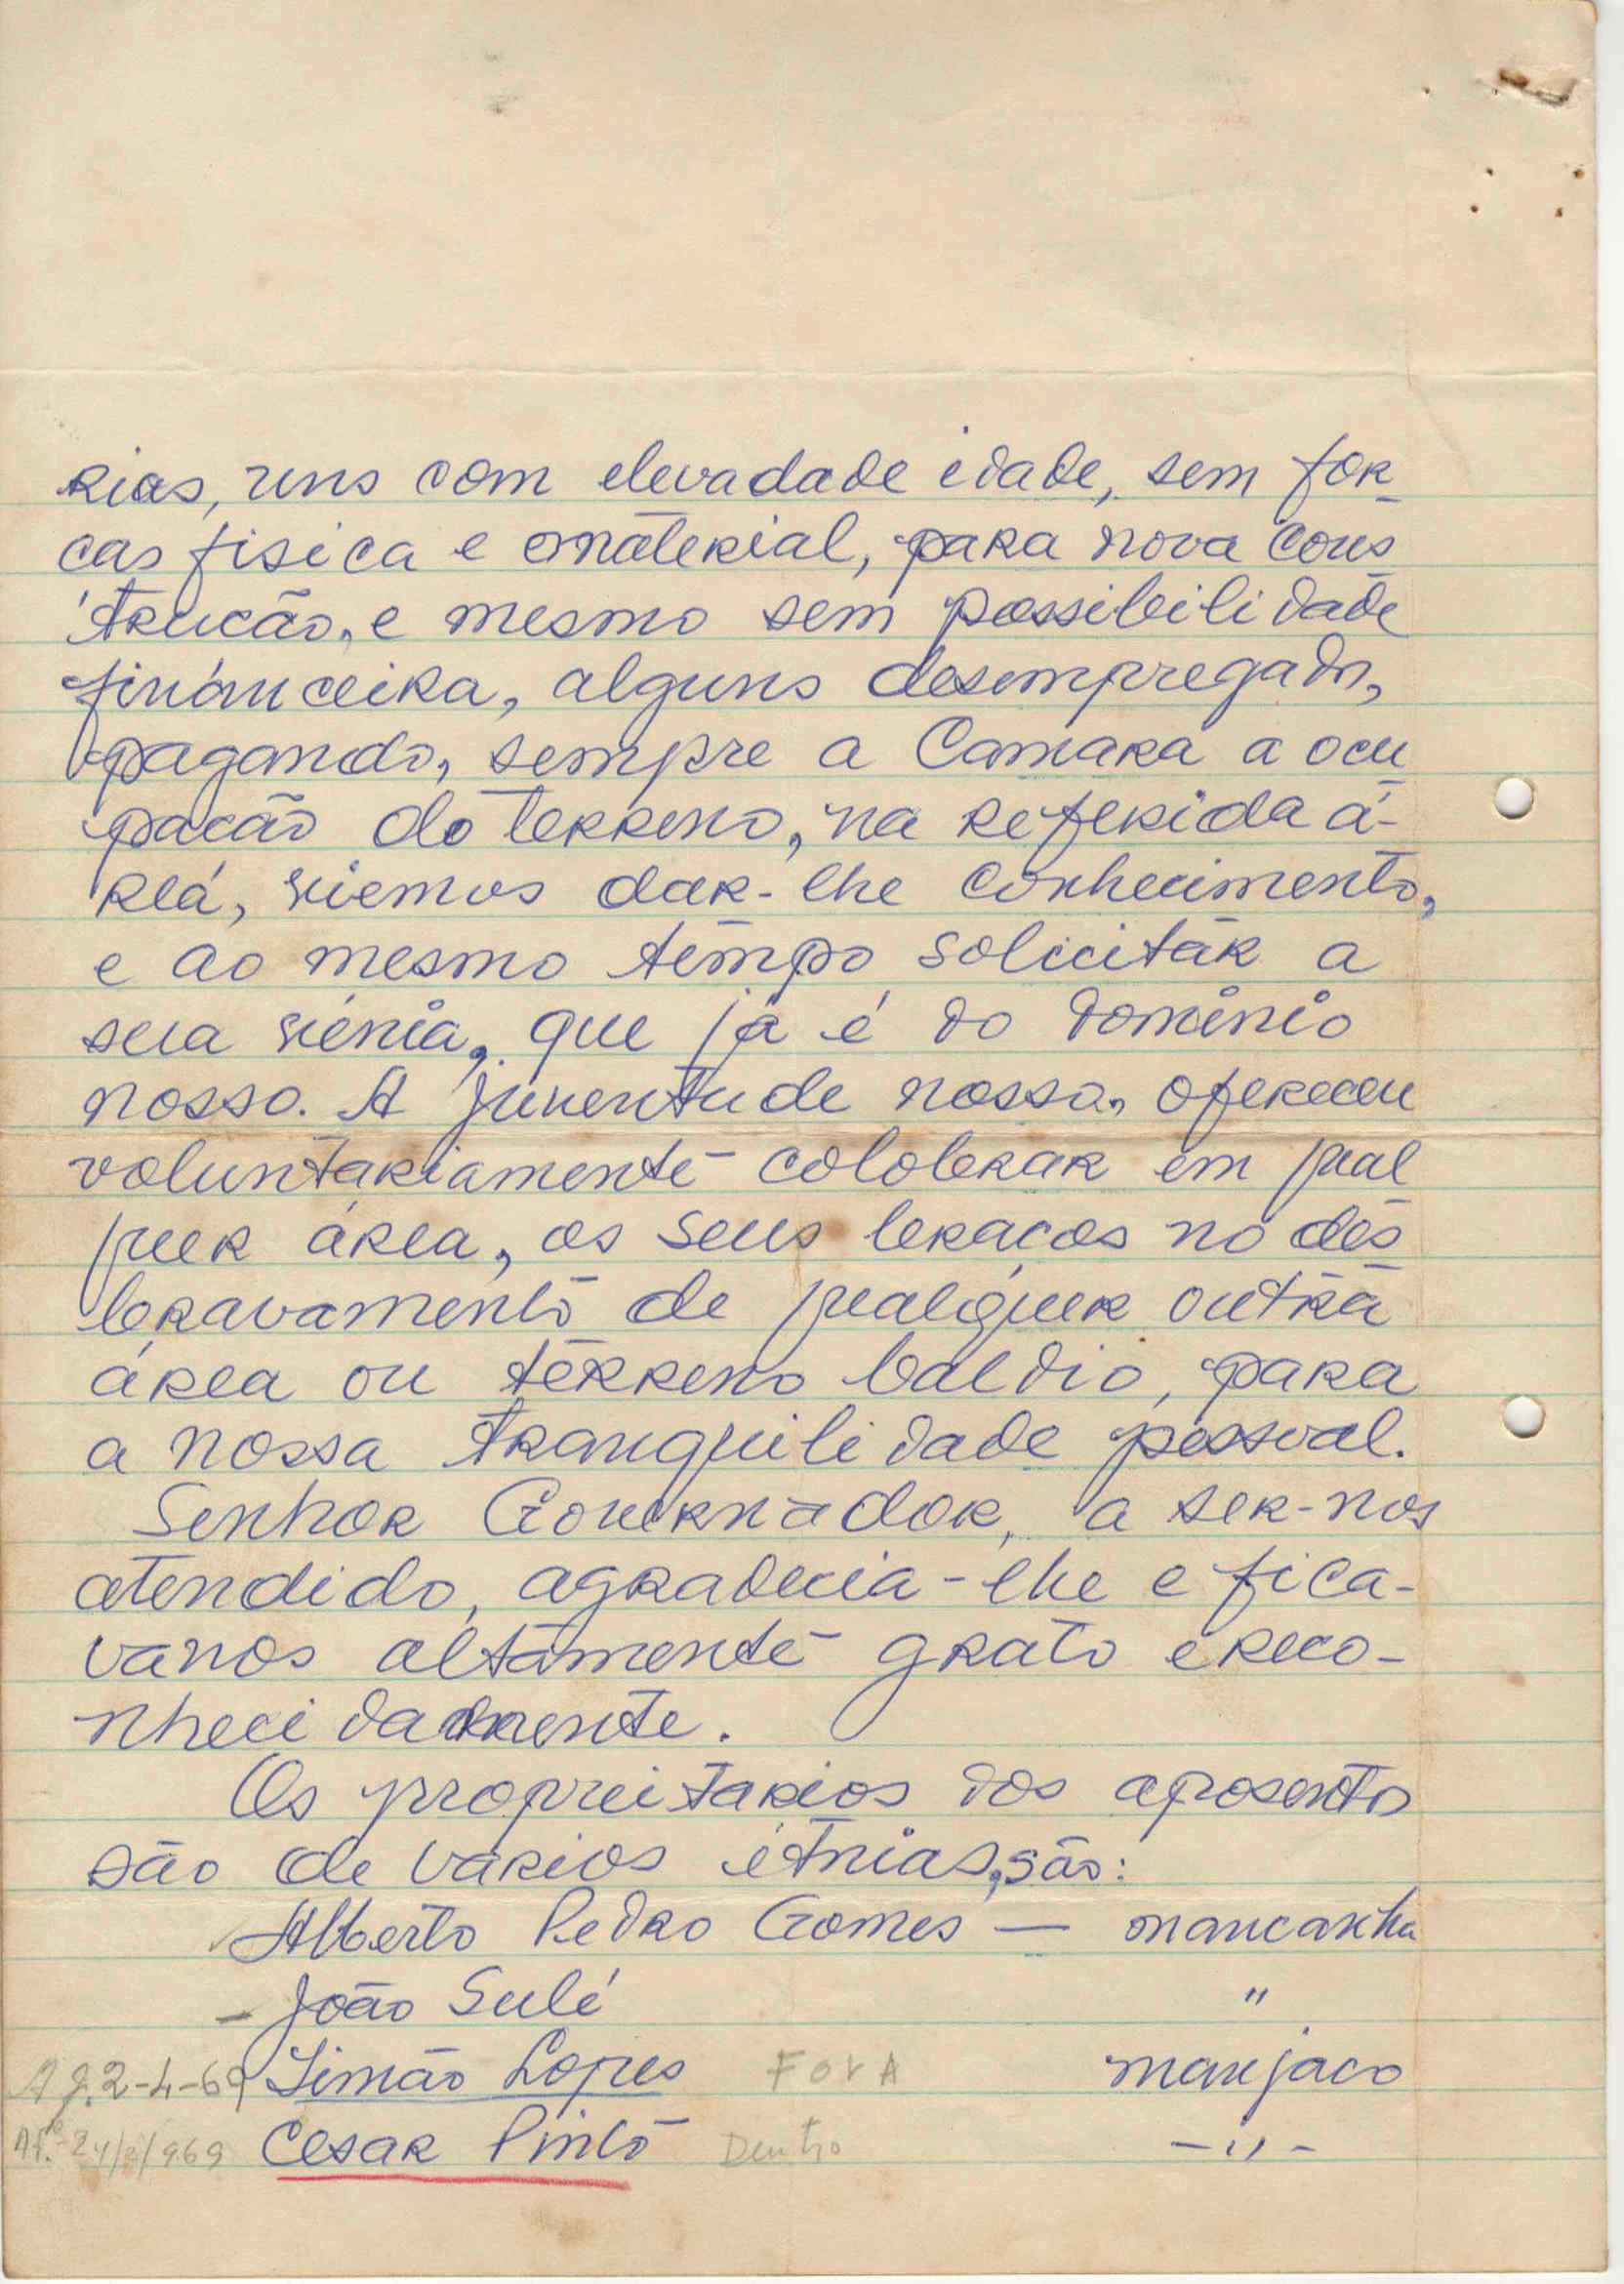 rias, uns com elevadade idade, sem for
cas fisica e material, para nova cons
trucão, e mesmo sem possibilidade
financeira, alguns desempregados,
pagando, sempre a Camara a ocu
pacão do terreno, na referida á-
reá, viemos dar-lhe conhecimento,
e ao mesmo tempo solicitar a
sua vénia, que já é do dominio
nosso. A juventude nossa, ofereceu
voluntariamente coloborar em qual
quer área, os seus bracos no des
bravamento de qualquer outra
área ou terreno baldio, para
a nossa tranquilidade pessoal.
Senhor Governador, a ser-nos
atendido, agradecia-lhe e fica-
vanos altamente grato e reco-
nhecidamente.
Os propreitarios dos aposentos
são de varios étnias, são:
Alberto Pedro Gomes — mancanha
- João Sulé "
A g. 2-4-69 Simão Lopes FORA manjaco
24/3/969 Cesar Pinto Dentro -"-